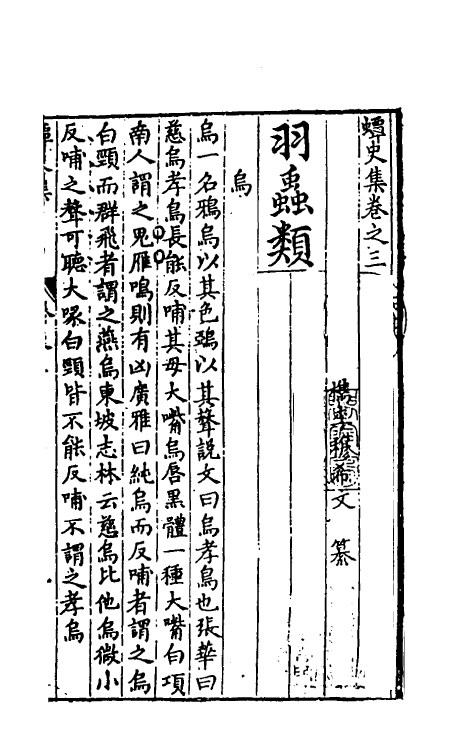 蟫史集卷之三
穆希文 纂
羽蟲類
烏
烏一名鴉烏以其色鴉以其聲說文曰烏孝鳥也張華曰
慈烏孝鳥長能反哺其母大嘴烏唇黑體一種大嘴白項
南人謂之鬼雁鳴則有凶廣雅曰純烏而反哺者謂之烏
白頸而群飛者謂之燕烏東坡志林云慈烏比他烏微小
反哺之聲可聽大喙白頸皆不能反哺不謂之孝烏